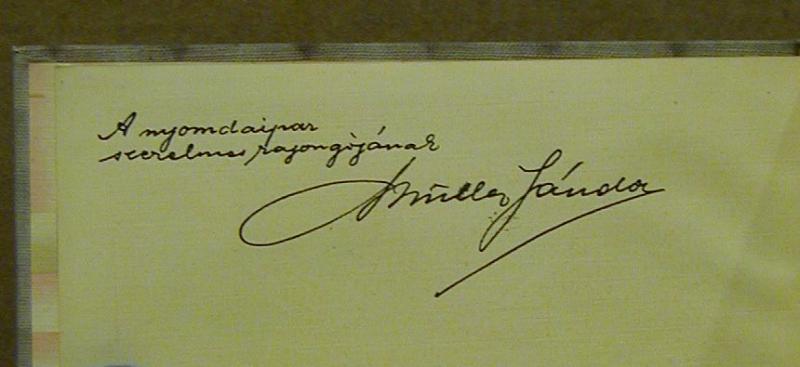 A nyomdaipar
szerelmes rajongójának
Müller Sándor